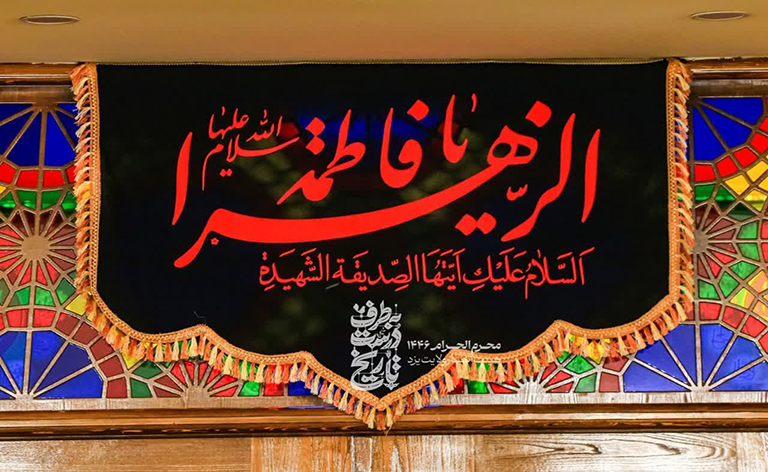 یا فاطمة الزهرا
سلام الله علیها
اَلسَّلامُ عَلَیْكِ اَیَّتُهَا الصِّدیقَةِ الشَّهیدَةِ
به طرف
درست
تاریخ
محرم الحرام ۱۴۴۶
ولایت یزد